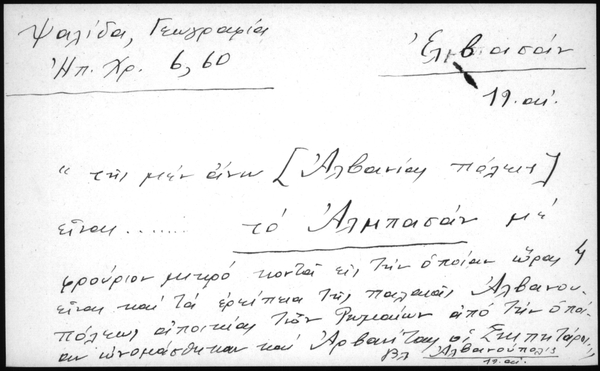 Ψαλίδα, Γεωγραφία
Ἠπ. Χρ. 6, 60
Ἐλβασάν
19. αἰ.
"τῆς μὲν ἄνω [Ἀλβανίας πόλεις]
εἶναι ....... τὸ Ἀλμπασάν μὲ
φρούριον μικρό κοντά εἰς τὴν ὁποίαν ὥρας 4
εἶναι καὶ τὰ ἐρείπια τῆς παλαιᾶς Ἀλβανου-
πόλεως ἀποικίας τῶν Ῥωμαίων ἀπὸ τὴν ὁποί-
αν ὠνομάσθηκαν καὶ Ἀρβανίται οἱ Σκιπητάροι,
βλ Ἀλβανούπολις
19. αἰ.